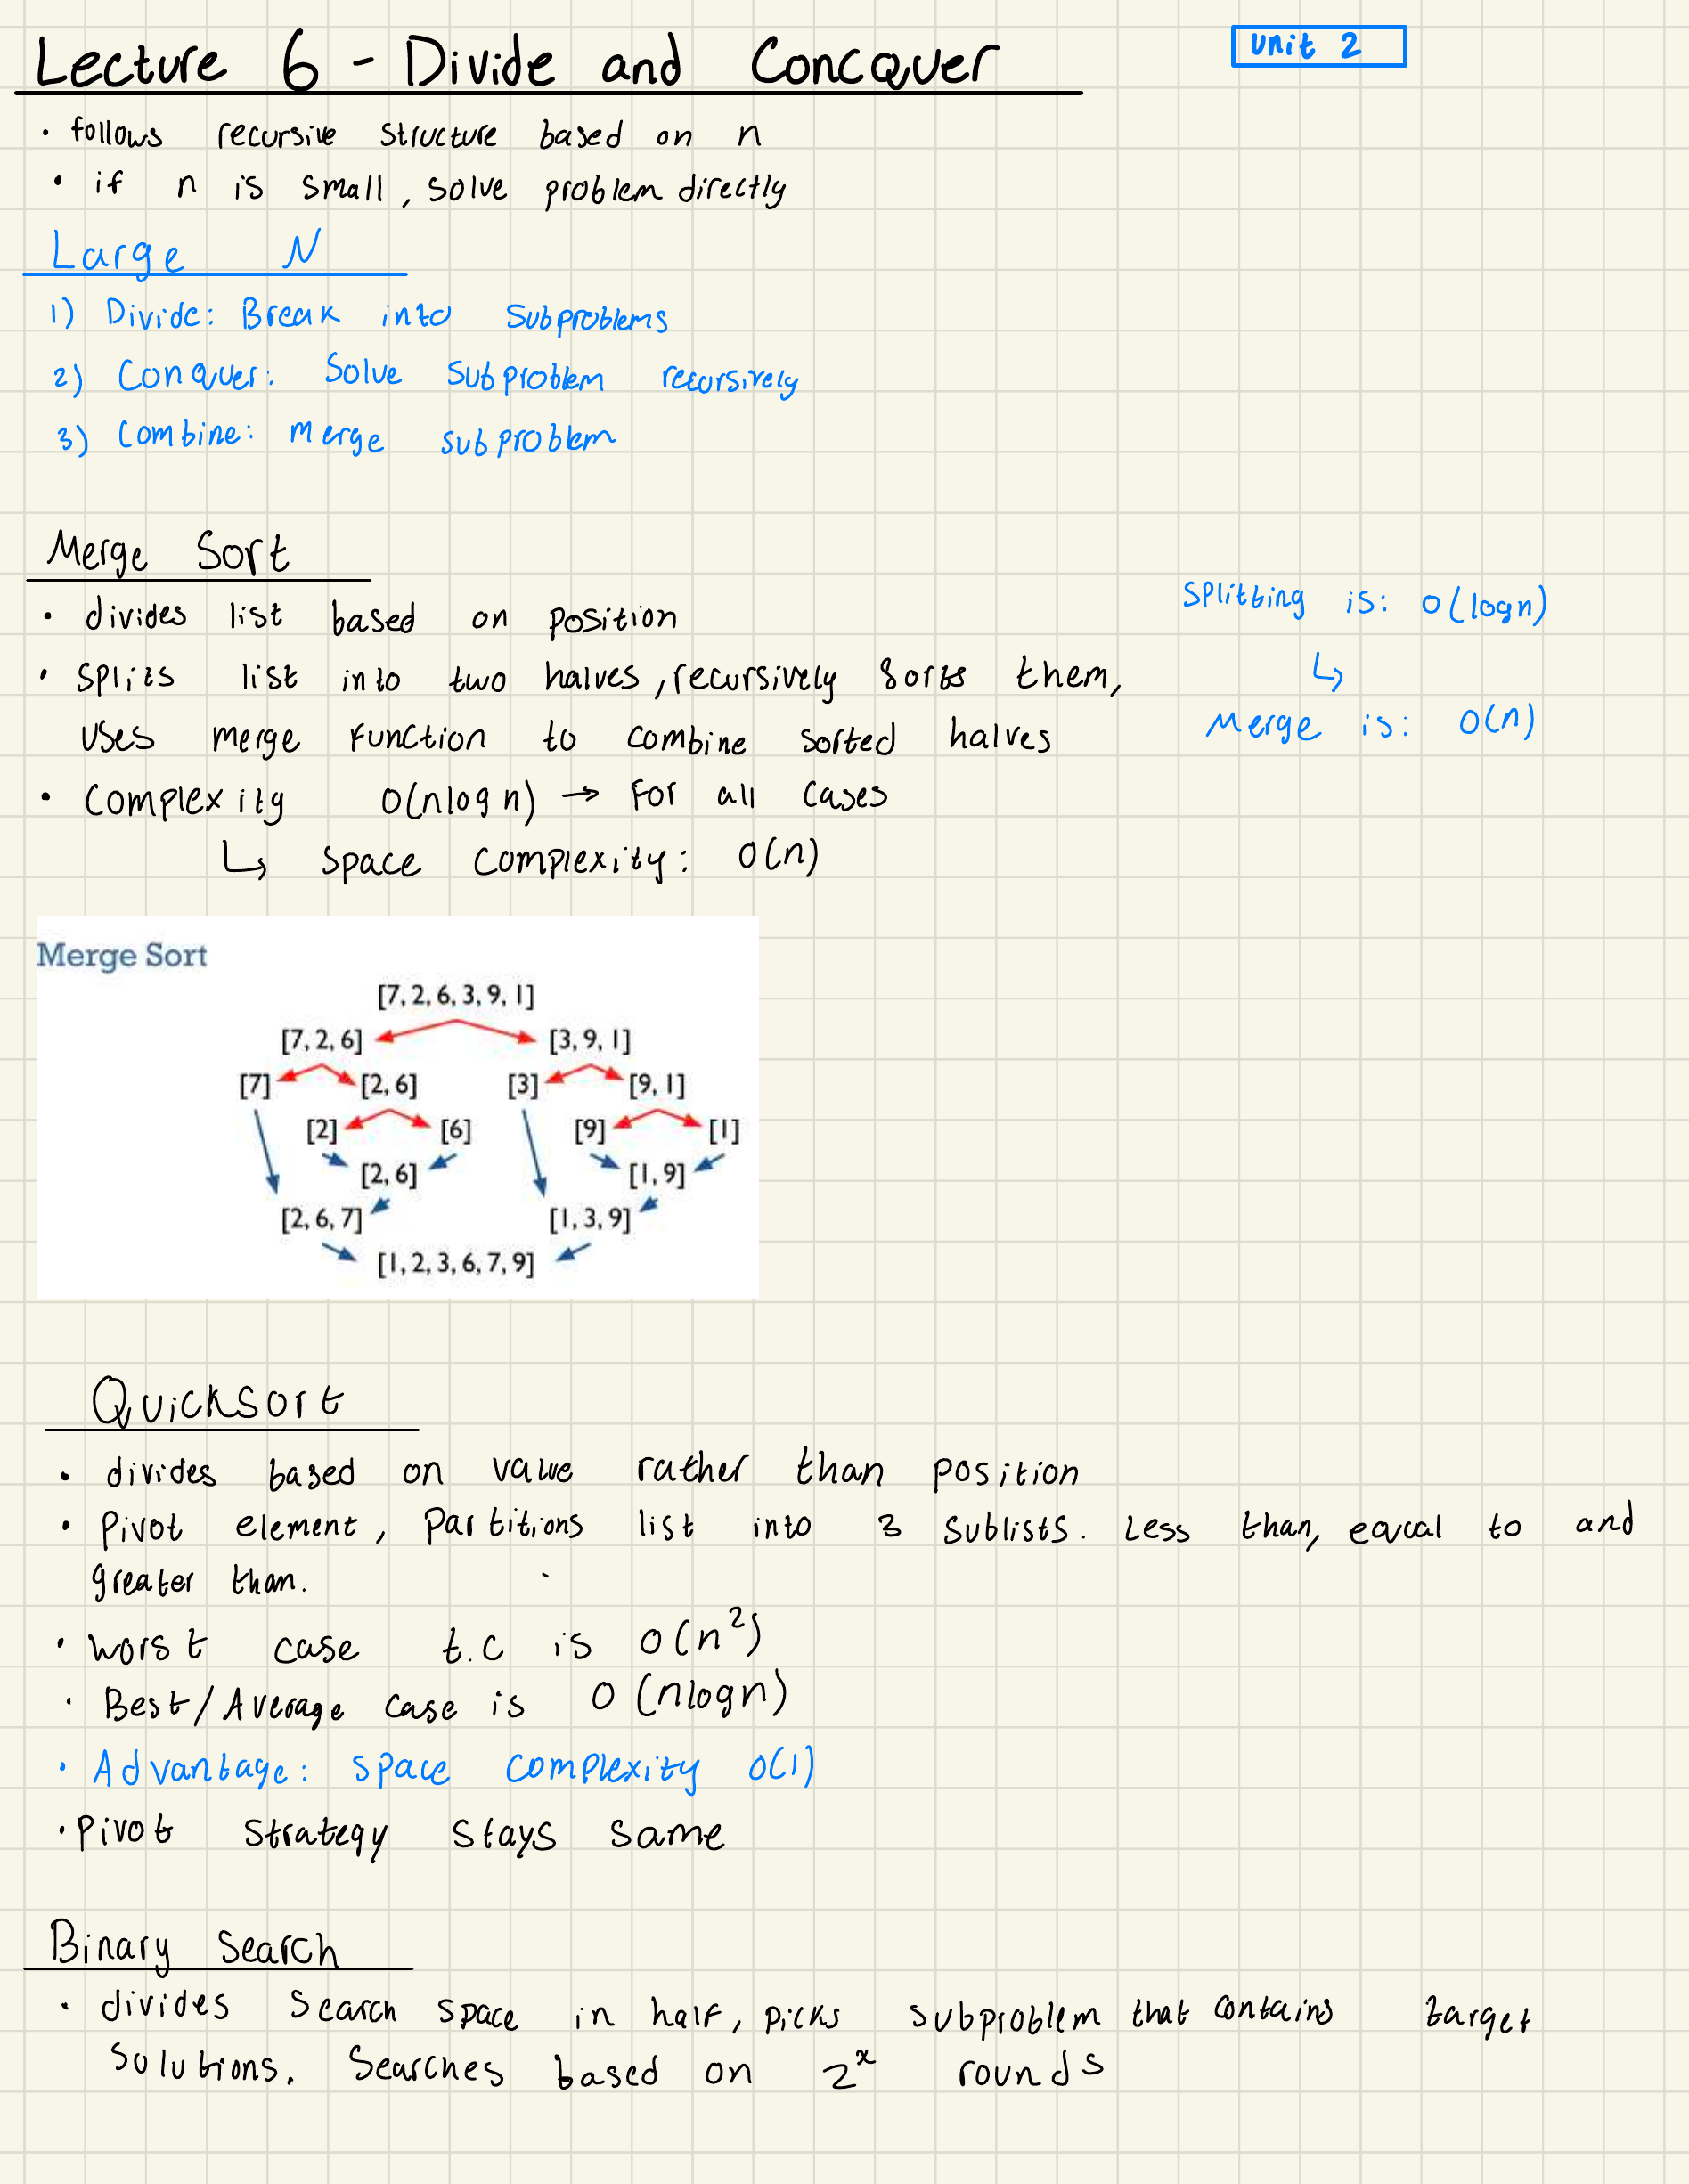 Lecture 6 - Divide and Concquer
Unit 2
• follows recursive structure based on n
• if n is small, solve problem directly
Large N
1) Divide: Break into subproblems
2) Conquer: Solve subproblem recursively
3) Combine: Merge subproblem
Merge Sort
• divides list based on position
• splits list into two halves, recursively sorts them,
uses merge function to combine sorted halves
• Complexity O(nlogn) → For all cases
↳ space complexity: O(n)
Splitting is: O(logn)
↳
Merge is: O(n)
Merge Sort
[7, 2, 6, 3, 9, 1]
[7, 2, 6] [3, 9, 1]
[7] [2, 6] [3] [9, 1]
[2] [6] [9] [1]
[2, 6] [1, 9]
[2, 6, 7] [1, 3, 9]
[1, 2, 3, 6, 7, 9]
Quicksort
• divides based on value rather than position
• Pivot element, partitions list into 3 sublists. Less than, equal to and
greater than.
• worst case t.c is O(n²)
• Best/Average case is O(nlogn)
• Advantage: space complexity O(1)
• Pivot strategy stays same
Binary Search
• divides search space in half, picks subproblem that contains target
solutions. Searches based on 2ˣ rounds